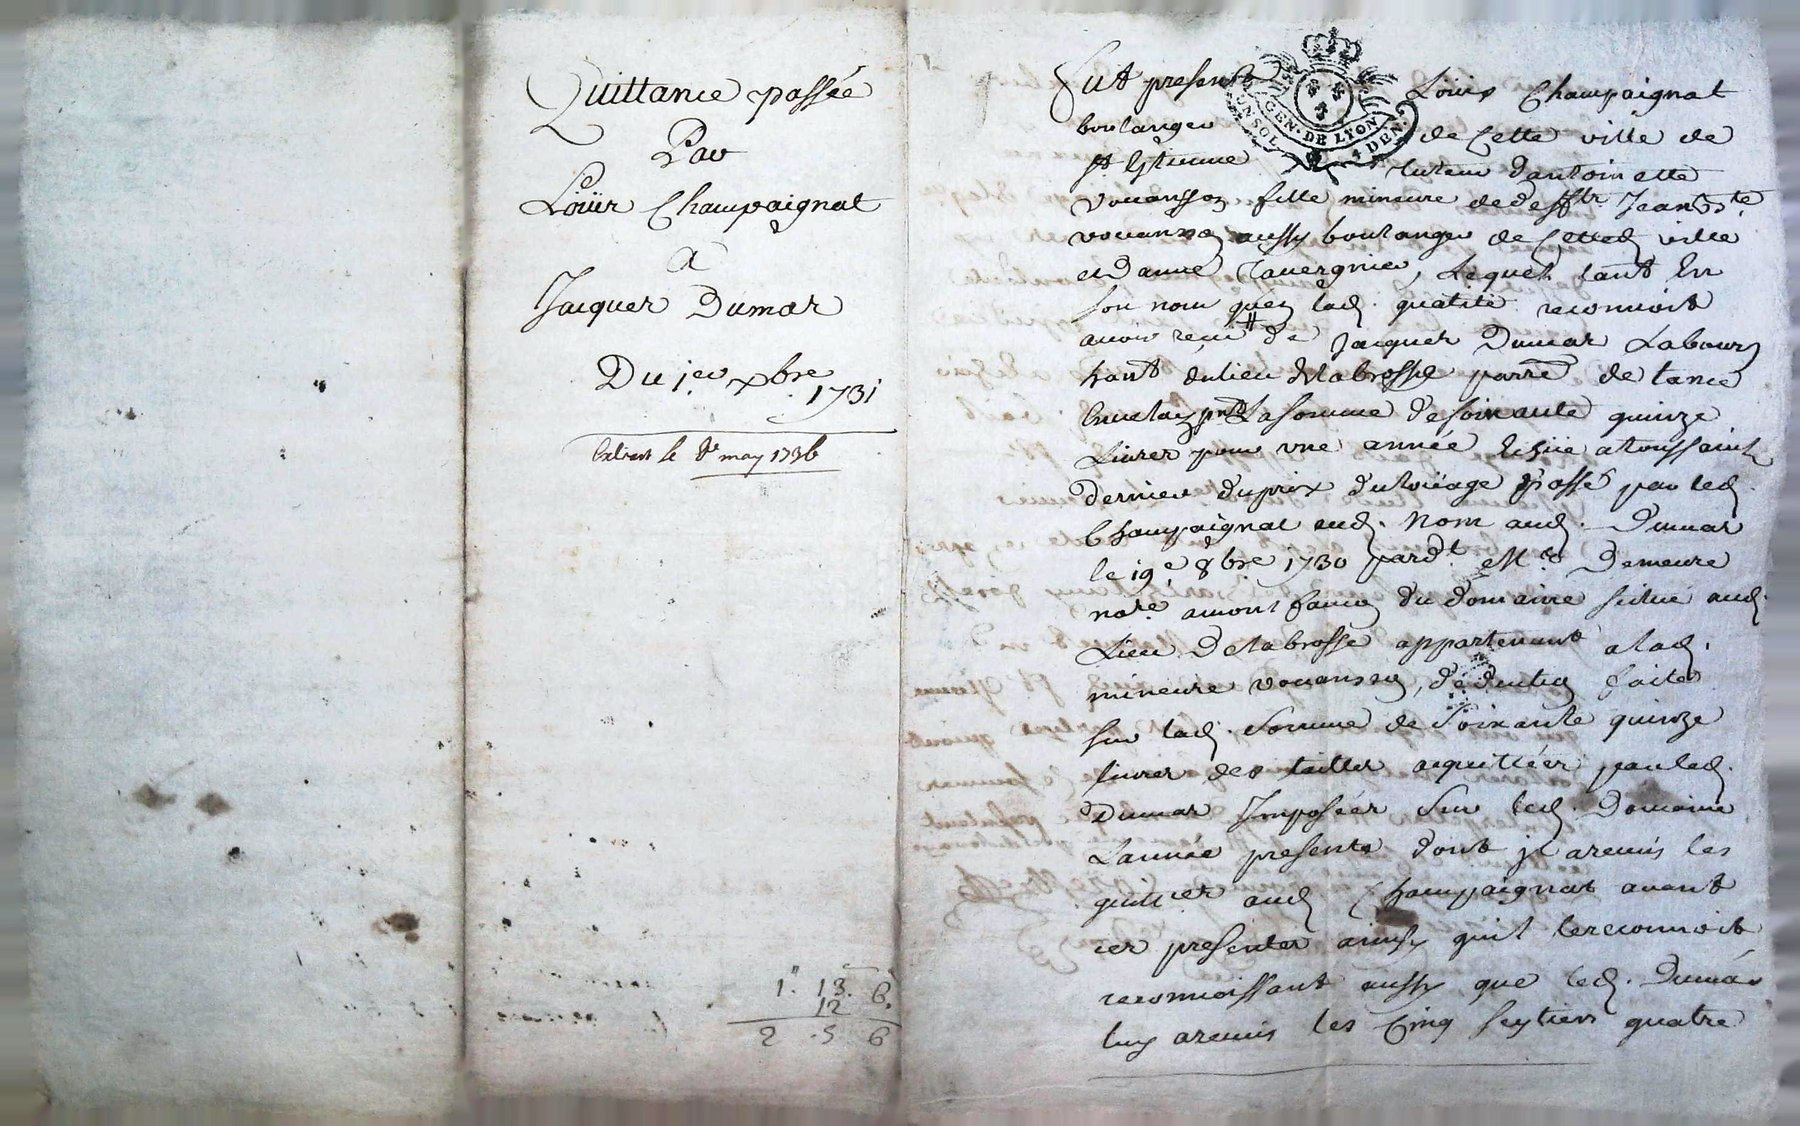 Quittance passée
Par
Loüis Champaignat
A
Jacques Dumas
Du 1.er xbre 1731
Extrait le 8e may 1736
1. 13. 6.
12
2 5 6
Fut present Loüis Champaignat
boulanger de Cette ville de
st Estienne tuteur dantoinette
vouanson fille mineure de defft Jean Bte
vouanson aussy boulanger de Cetted ville
et danne tauergnier, Lequel tant En
son nom quen lad. qualité reconnoit
auoir reçu de Jacques Dumas Labour
hant dulieu delabrosse parre de
la somme de soixante quinze
Liures pour vne année Echüe atoussaint
dernier duprix du passé par led
Champaignat aud. Nom aud. Dumas
le 19e 8bre 1730 pard.t Me Demeure
nore du domaine situe aud.
Lieu Delabrosse appartenant alad.
mineure vouanson, déduction faite
sur lad. Somme de Soixante quinze
liures des tailles acquittées par led.
Dumas Imposées Sur led. Domaine
Lannée presente dont jl aremis les
quittces aud Champaignat auant
ces presentes ainsy quil lereconnoit
reconnoissant aussy que led. Dumas
luy aremis les Cinq septiers quatre
GEN. DE LYON
4 DEN.